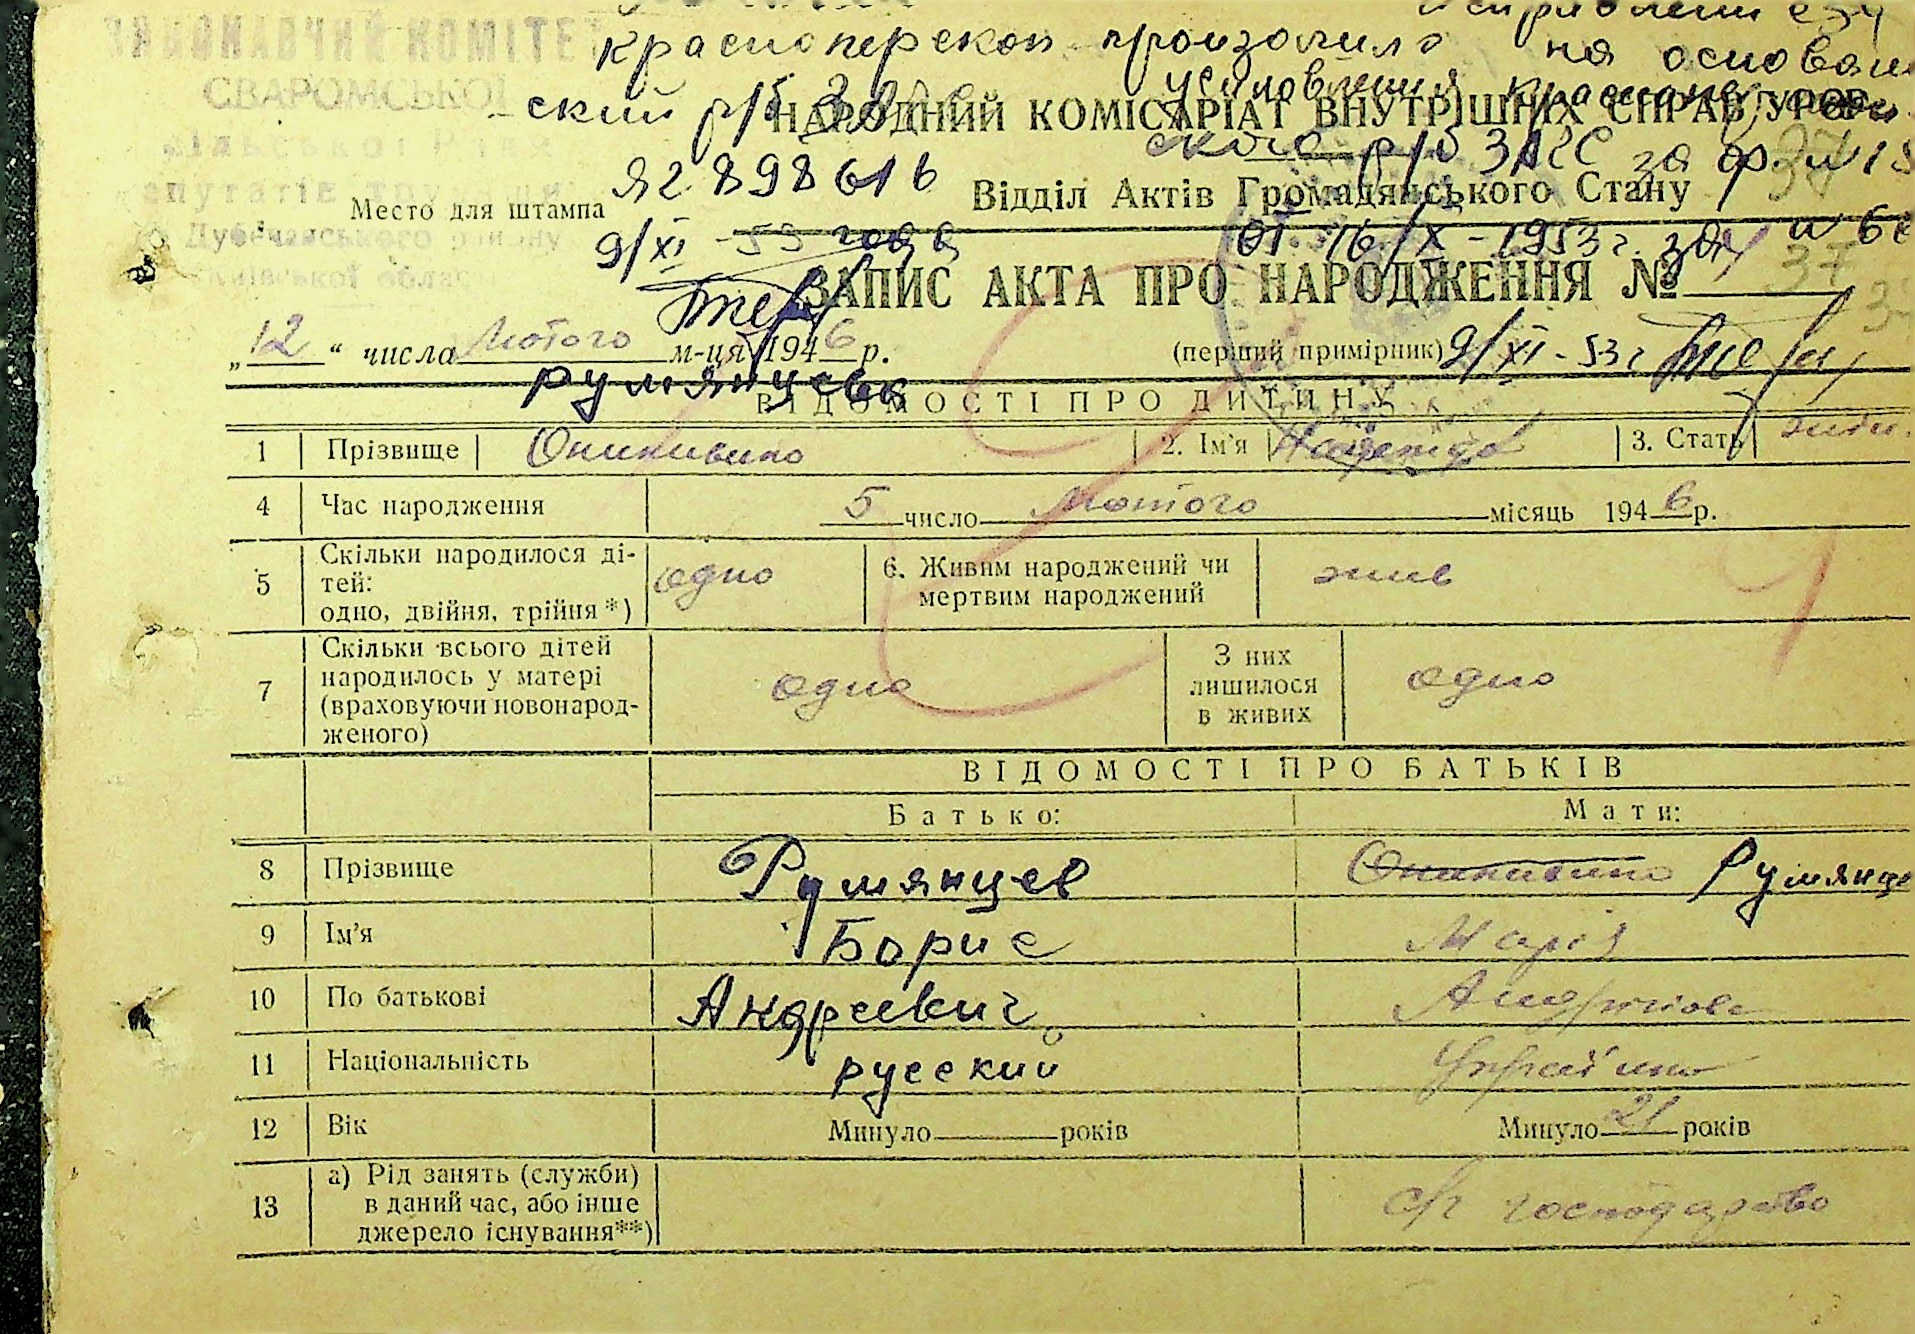 ВИКОНАВЧИЙ КОМІТЕТ
СВАРОМСЬКОЇ
сільської Ради
депутатів трудящих
Київської області
Место для штампа
Красноперекоп
ский р/б ЗАГС
2898616
9/XI - 53 года
произошло на основани
усыновления
ского р/б ЗАГС за
от 16/X - 1953 г.
НАРОДНИЙ КОМІСАРІАТ ВНУТРІШНІХ СПРАВ УРСР
Відділ Актів Громадянського Стану
37
ЗАПИС АКТА ПРО НАРОДЖЕННЯ №
37
„12“ числа Лютого м-ця 1946 р.
(перший примірник) 9/XI - 53 г
Румянцева
ВІДОМОСТІ ПРО ДИТИНУ
1 Прізвище 2. Ім'я Надежда 3. Стать
4 Час народження 5 число Лютого місяць 1946 р.
5 Скільки народилося ді-
тей:
одно, двійня, трійня *) одно 6. Живим народжений чи
мертвим народжений жив
7 Скільки всього дітей
народилось у матері
(враховуючи новонарод-
женого) одно З них
лишилося
в живих одно
ВІДОМОСТІ ПРО БАТЬКІВ
Батько: Мати:
8 Прізвище Румянцев Румянце
9 Ім'я Борис Марія
10 По батькові Андреевич
11 Національність русский
12 Вік Минуло років Минуло 21 років
13 а) Рід занять (служби)
в даний час, або інше
джерело існування**) с/г господарство